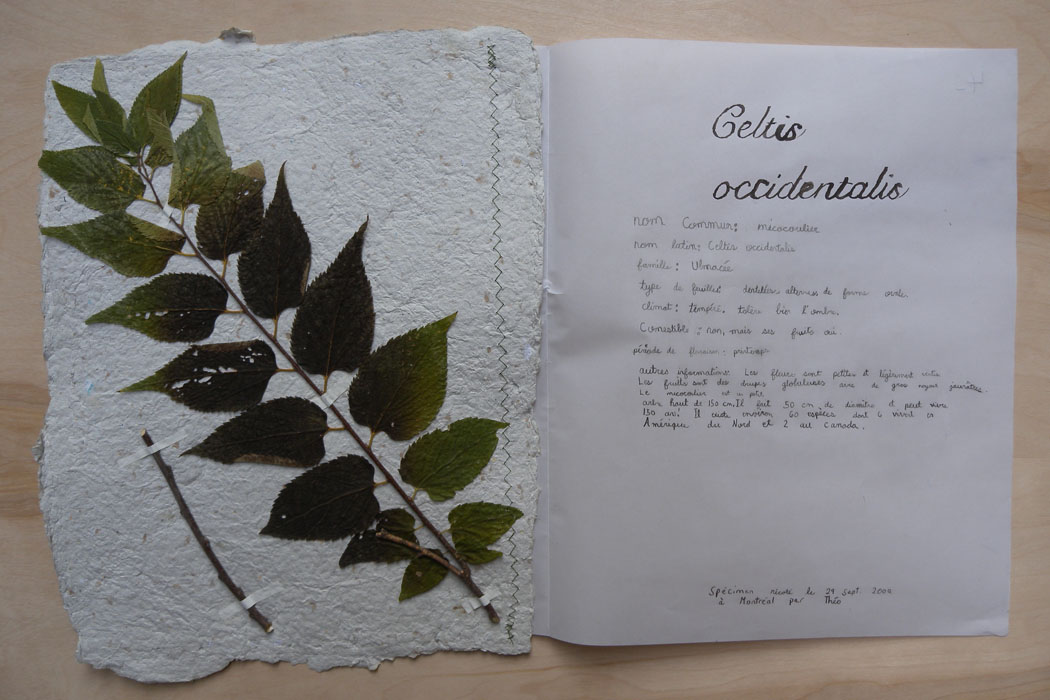 Celtis
occidentalis
nom Commun: micocoulier
nom latin: Celtis occidentalis
famille: Ulmacée
type de feuilles: dentelées, alternes de forme ovale.
climat: tempéré, tolère bien l'ombre.
Comestible: non, mais ses fruits oui.
période de floraison: printemps
autres informations: Les fleurs sont petites et légèrement
Les fruits sont des drupes globuleuses avec de gros noyaux
Le micocoulier est un petit
arbre haut de 150 cm. Il fait 50 cm de diamètre et peut vivre
150 ans! Il existe environ 60 espèces dont 6 vivent en
Amérique du Nord et 2 au Canada.
Spécimen récolté le 29 sept.
à Montréal par Théo